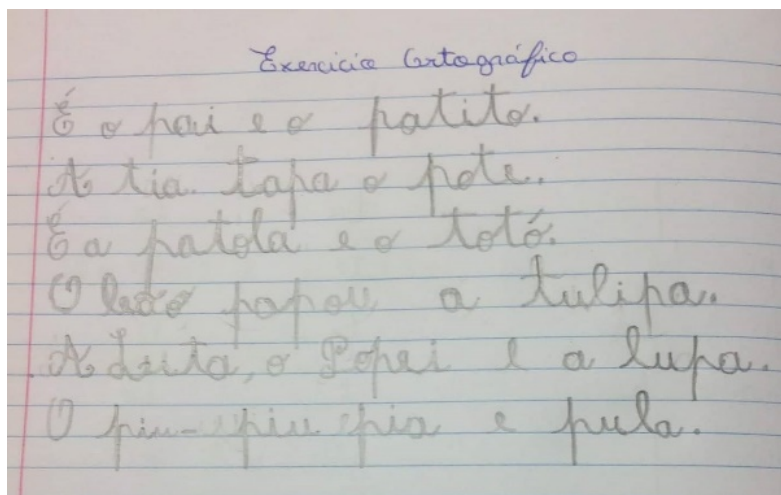 Exercicio Ortográfico
É o pai e o patito.
A tia. tapa o pote.
É a patola e o totó.
O papou a tulipa.
A , o Popai e a lupa.
O piu-piu pia e pula.